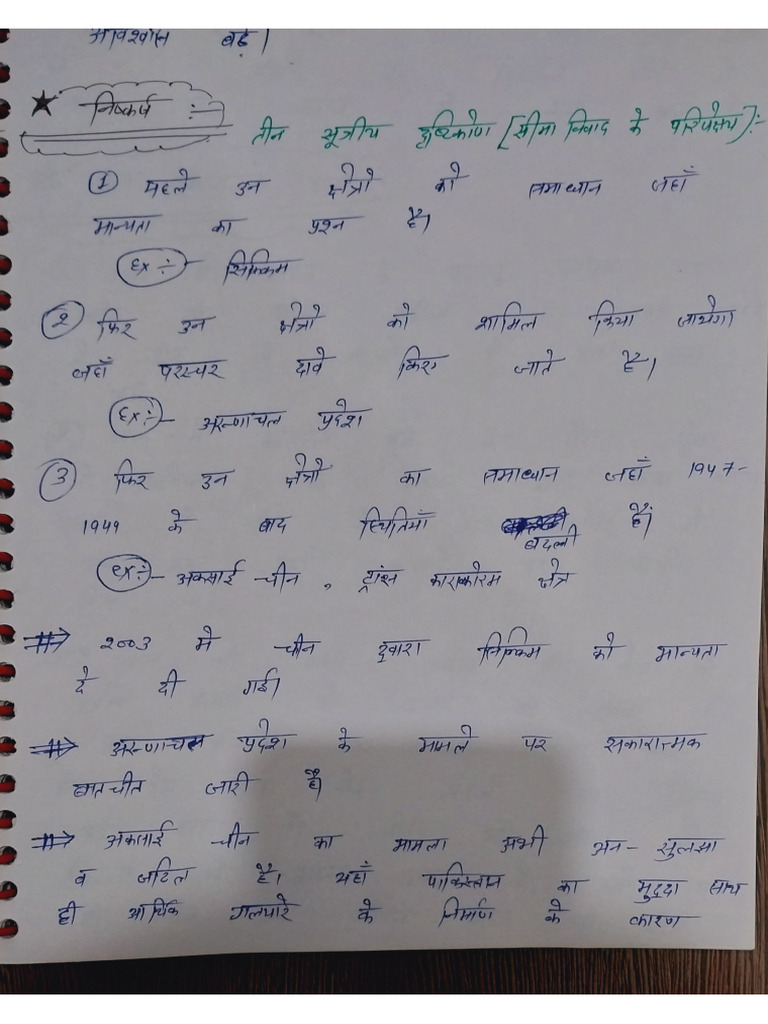 अविश्वास बढ़े।
★ निष्कर्ष :-
तीन सूत्रीय दृष्टिकोण [सीमा विवाद के परिपेक्ष्य]:-
① पहले उन क्षेत्रो को समाधान जहाँ
मान्यता का प्रश्न है।
Ex :- सिक्किम
② फिर उन क्षेत्रो को शामिल किया जायेगा
जहाँ परस्पर दावे किए जाते है।
Ex :- अरुणाचल प्रदेश
③ फिर उन क्षेत्रो का समाधान जहाँ 1947-
1949 के बाद स्थितियाँ बदली हैं।
ex :- अक्साई चीन , ट्रांस काराकोरम क्षेत्र
⇒ 2003 मे चीन द्वारा सिक्किम को मान्यता
दे दी गई।
⇒ अरुणाचल प्रदेश के मामले पर सकारात्मक
बातचीत जारी है।
⇒ अक्साई चीन का मामला अभी अन-सुलझा
व जटिल है। यहाँ पाकिस्तान का मुद्दा साथ
ही आर्थिक गलियारे के निर्माण के कारण